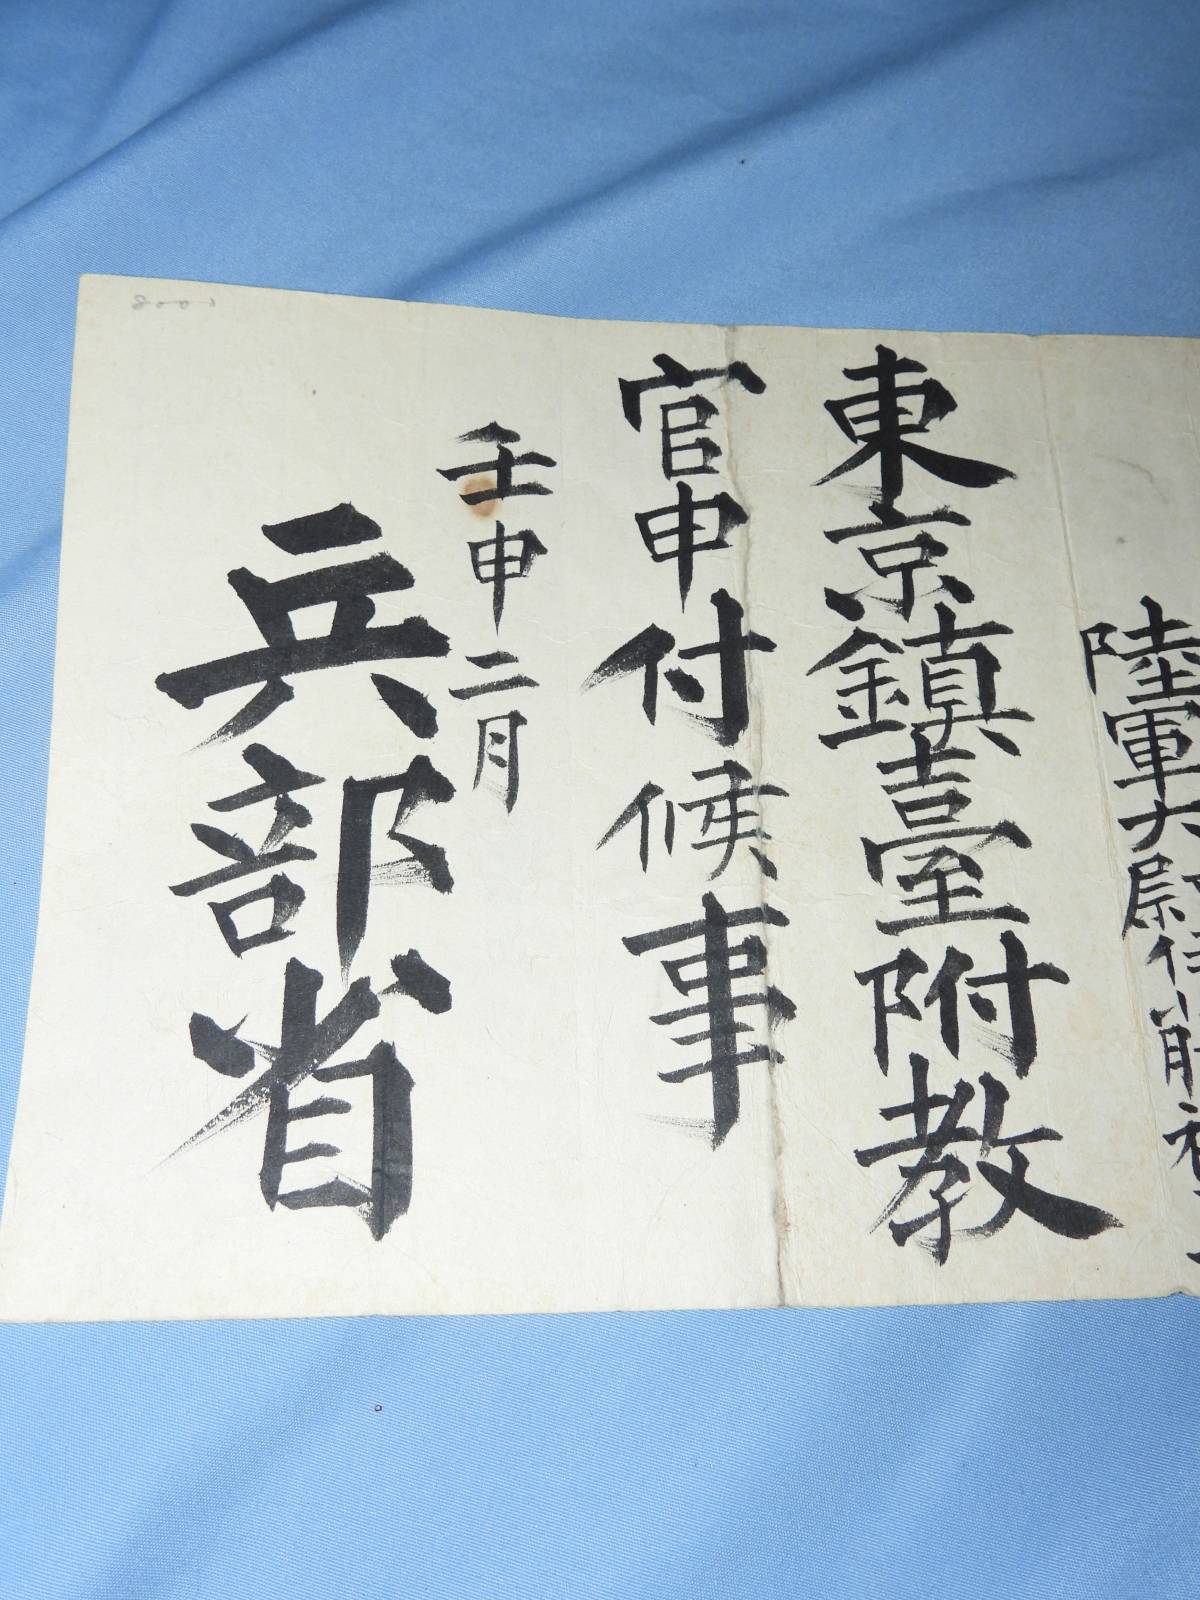 陸軍大尉伊
東京鎮臺附教
官申付候事
壬申二月
兵部省
8000